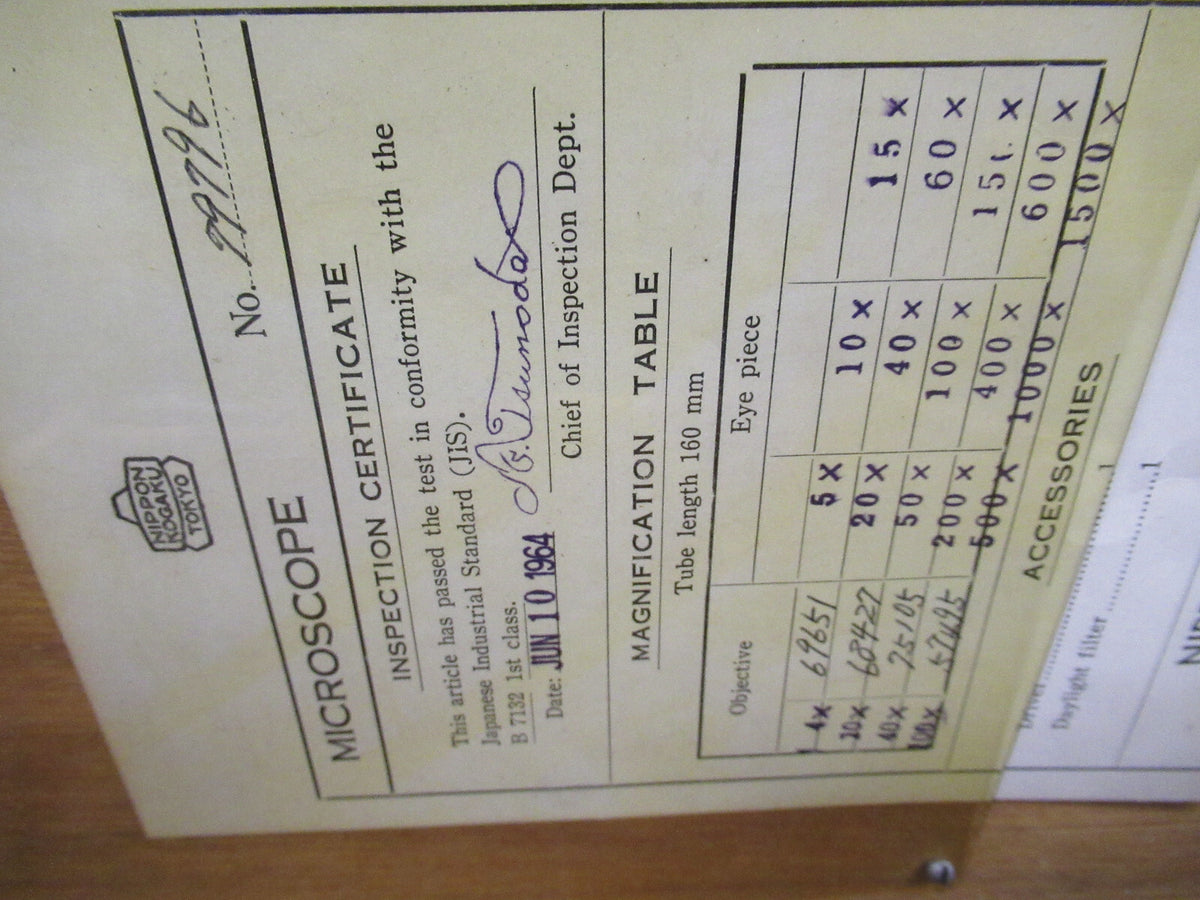 NIPPON
KOGAKU
TOKYO
No.
MICROSCOPE
INSPECTION CERTIFICATE
This article has passed the test in conformity with the
Japanese Industrial Standard (JIS).
B 7132 1st class.
Date: JUN 10 1964
Chief of Inspection Dept.
MAGNIFICATION TABLE
Tube length 160 mm
Objective Eye piece
5 x 10 x 15 x
4x 69651 20 x 40 x 60 x
10x 68427 50 x 100 x 150 x
40x 75105 200 x 400 x 600 x
100x 500 x 1000 x 1500 x
ACCESSORIES
1
Daylight filter 1